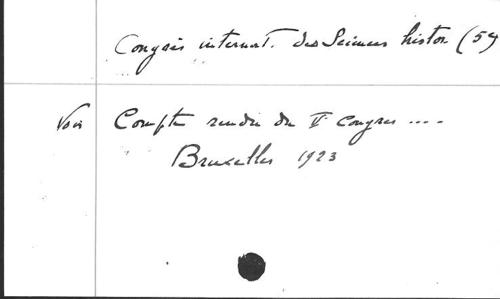 Congrès internat. des Sciences histor (5e)
Voir Compte rendu du Ve congres ....
Bruxelles 1923